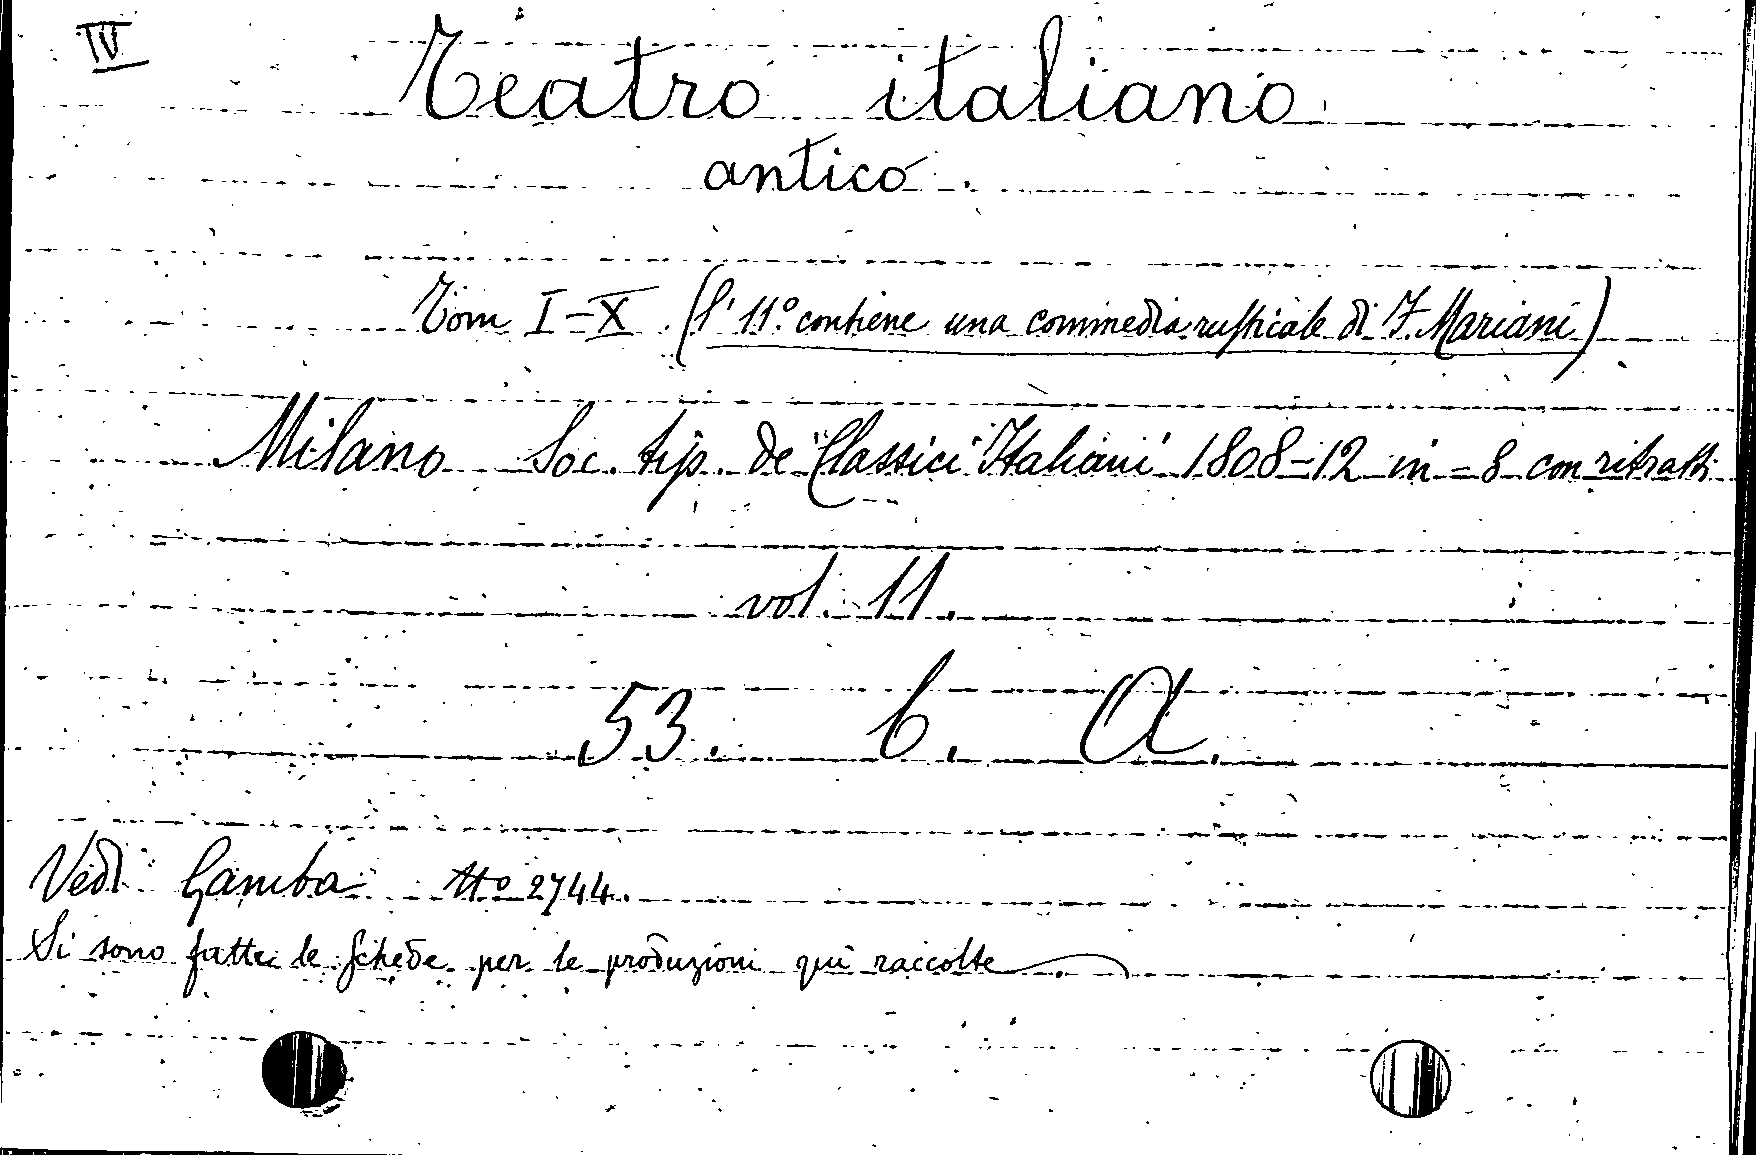 IV
Teatro italiano
antico.
Tom I-X (l' 11.º contiene una commedia rusticale di F. Mariani)
Milano Soc. tip. de' Classici Italiani 1808-12 in=8 con ritratti
vol. 11.
53. 6. A.
Vedi Gamba Nº 2744.
Si sono fatte le schede per le produzioni qui raccolte